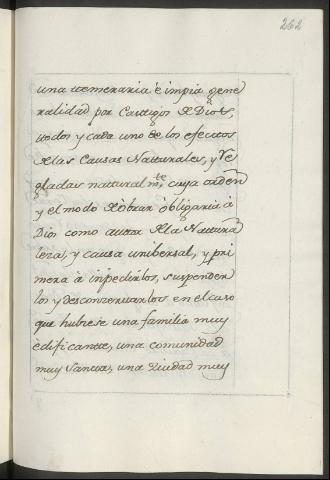 262
una temeraria è impia gene
ralidad por Castigos de Dios,
todos y cada uno de los efectos
de las Causas Naturales, y Re
gladas naturalmte, cuya orden
y el modo de òbrar òbligaria à
Dios como autor de la Natura
leza, y causa unibersal, y pri
mera à inpedirlos, suspender
los y desconzertarlos, en el caso
que hubiese una familia muy
èdificante, una comunidad
muy Santa, una Ziudad muy